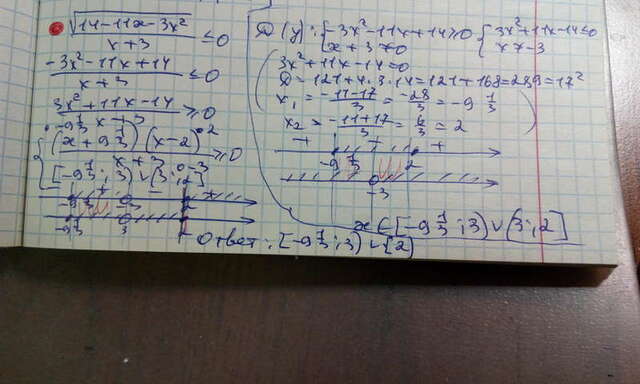 √(14-11x-3x²) / (x+3) ≤ 0
(-3x²-11x+14) / (x+3) ≤ 0
(3x²+11x-14) / (x+3) ≥ 0
{ (x+9 1/3)(x-2) / (x+3) ≥ 0
[-9 1/3; 3) ∪ (3;
+
-9 1/3
3
D(y): { -3x²-11x+14≥0 { 3x²+11x-14≤0
x+3≠0 x≠-3
3x²+11x-14=0
D=121+4·3·14=121+168=289=17²
x₁ = (-11-17)/3 = -28/3 = -9 1/3
x₂ = (-11+17)/3 = 6/3 = 2
+ - +
-9 1/3 2
-3
x ∈ [-9 1/3; 3) ∪ (3; 2]
Ответ: [-9 1/3; 3) ∪ [2]